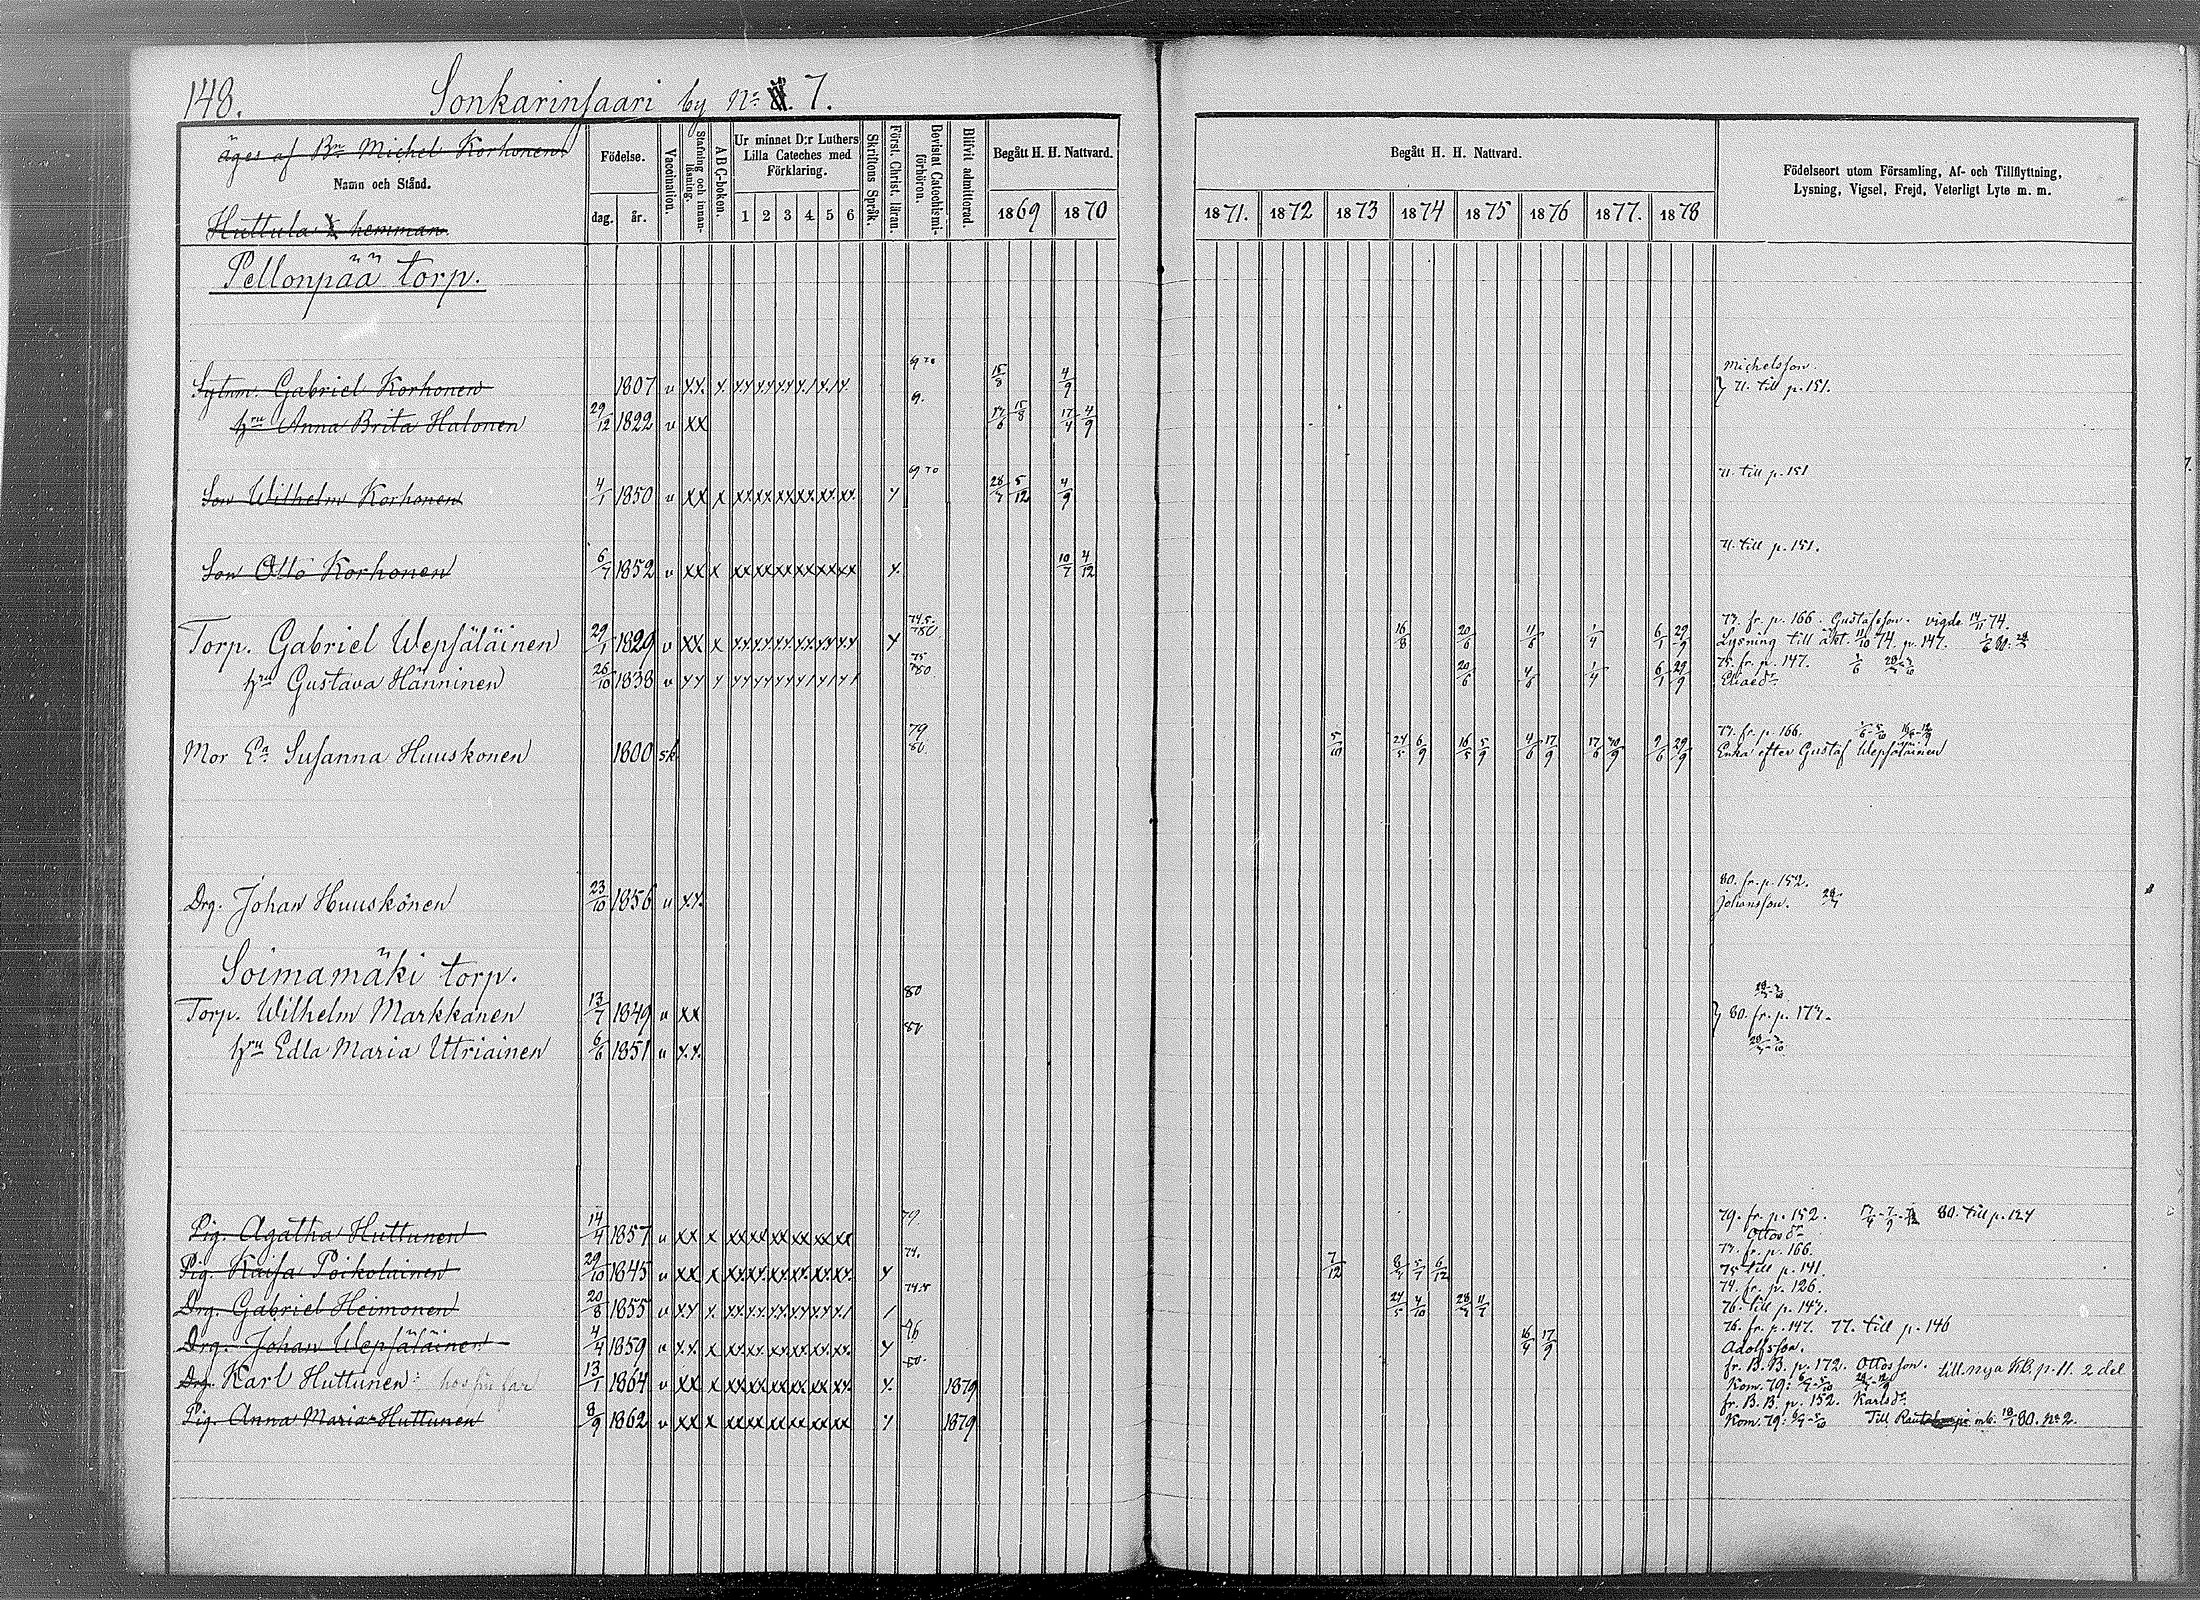 148.
Sonkarinsaari by No 7.
äges af Bn Michel Korhonen
Namn och Stånd.
Huttula hemman.
Födelse.
dag.
år.
Vaccination.
Stafning och innan-läsning.
A B C-boken.
Ur minnet D:r Luthers
Lilla Cateches med
Förklaring.
1 2 3 4 5 6
Skriftens Språk.
Först. Christ. läran.
Bevistat Catechismi-förhören.
Blifvit admitterad.
Begått H. H. Nattvard.
1869 1870
Begått H. H. Nattvard.
1871. 1872 1873 1874 1875 1876 1877. 1878
Födelseort utom Församling, Af- och Tillflyttning,
Lysning, Vigsel, Frejd, Veterligt Lyte m. m.
Pellonpää torp.
Sytnm. Gabriel Korhonen 1807 v 69 70 15/8 4/9 Michelsson.
71. till p. 151.
hru Anna Brita Halonen 29/12 1822 v xx 69. 17/6 15/8 17/4 4/9
Son Wilhelm Korhonen 4/1 1850 v xx x 69 70 5/12 4/9 71. till p. 151
Son Otto Korhonen 6/7 1852 v xx x 10/7 4/12 71. till p. 151.
Torp. Gabriel Wepsäläinen 29/1 1829 v xx x 16/8 20/6 4/6 1/4 6/1 29/9 fr. p. 166. Gustafsson. vigde 74.
Lysning till äkt. 74. p. 147.
hru Gustava Hänninen 26/10 1838 v 75 80 20/6 4/6 1/4 6/1 29/9 75. fr. p. 147.
Eliaedr
Mor Ea Susanna Huuskonen 1800 sk. 79 80. 5/10 24/5 6/9 16/5 5/9 4/6 17/9 29/9 fr. p. 166.
Enka efter Gustaf Wepsäläinen
Drg. Johan Huuskonen 23/10 1856 v 80. fr. p. 152.
Johansson.
Soimamäki torp.
Torp. Wilhelm Markkanen 13/7 1849 v xx 80
80. fr. p. 177.
hru Edla Maria Utriainen 6/6 1851 v 80
Pig. Agatha Huttunen 14/4 1857 v xx x 79. 79. fr. p. 152. 80. till p. 124
Ottosdr
Pig. Kaisa Poikolainen 29/10 1845 v xx x 74. 7/12 5/7 6/12 fr. p. 166.
75 till p. 141.
Drg. Gabriel Heimonen 20/8 1855 v 24/5 4/10 11/7 74. fr. p. 126.
76. till p. 147.
Drg. Johan Wepsäläinen 4/4 1859 v 76 16/4 17/9 76. fr. p. 147. 77. till p. 146
Adolfsson.
Drg. Karl Huttunen hos sin far 13/1 1864 v xx x 80. 1879 fr. B. B. p. 172. Ottosson. till nya KB. p. 11. 2 del
Kom. 79:
Pig. Anna Maria Huttunen 8/9 1862 v xx x 1879 fr. B. B. p. 152. Karlsdr
Kom. 79: Till mb. 80. No 2.